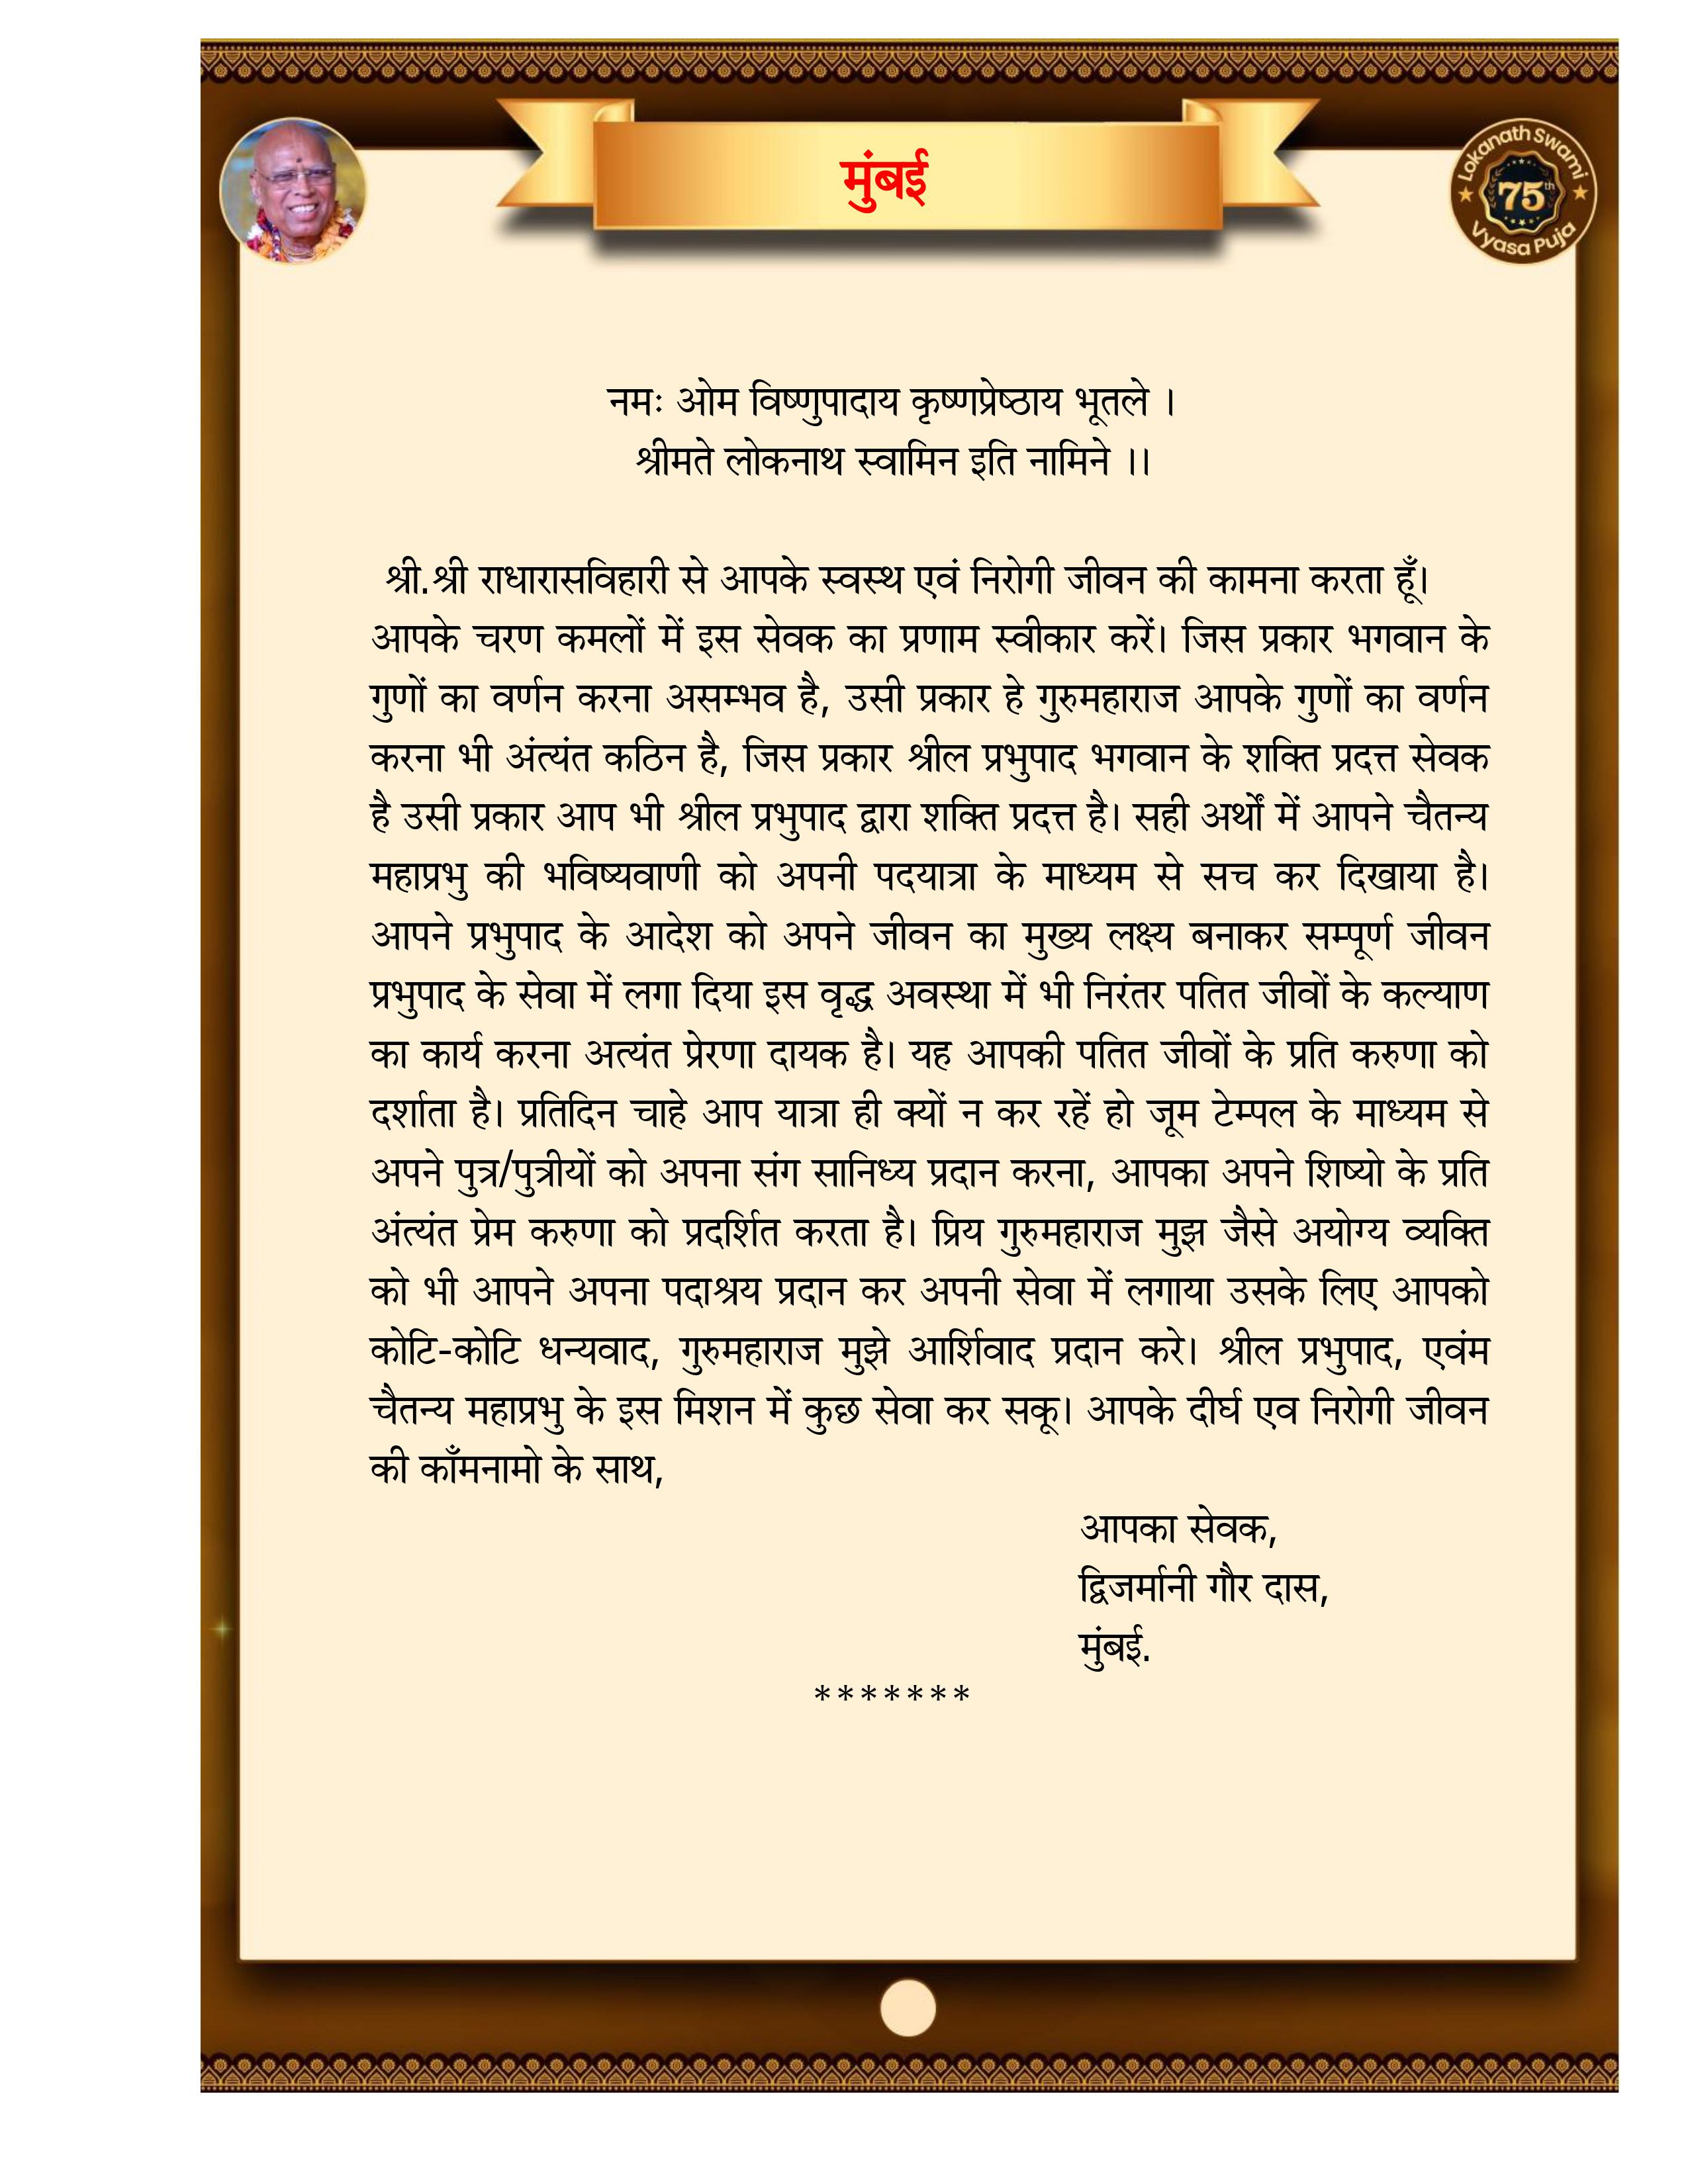 मुंबई
Lokanath Swami
75th
Vyasa Puja
नमः ओम विष्णुपादाय कृष्णप्रेष्ठाय भूतले ।
श्रीमते लोकनाथ स्वामिन इति नामिने ।।
श्री.श्री राधारासविहारी से आपके स्वस्थ एवं निरोगी जीवन की कामना करता हूँ।
आपके चरण कमलों में इस सेवक का प्रणाम स्वीकार करें। जिस प्रकार भगवान के
गुणों का वर्णन करना असम्भव है, उसी प्रकार हे गुरुमहाराज आपके गुणों का वर्णन
करना भी अंत्यंत कठिन है, जिस प्रकार श्रील प्रभुपाद भगवान के शक्ति प्रदत्त सेवक
है उसी प्रकार आप भी श्रील प्रभुपाद द्वारा शक्ति प्रदत्त है। सही अर्थों में आपने चैतन्य
महाप्रभु की भविष्यवाणी को अपनी पदयात्रा के माध्यम से सच कर दिखाया है।
आपने प्रभुपाद के आदेश को अपने जीवन का मुख्य लक्ष्य बनाकर सम्पूर्ण जीवन
प्रभुपाद के सेवा में लगा दिया इस वृद्ध अवस्था में भी निरंतर पतित जीवों के कल्याण
का कार्य करना अत्यंत प्रेरणा दायक है। यह आपकी पतित जीवों के प्रति करुणा को
दर्शाता है। प्रतिदिन चाहे आप यात्रा ही क्यों न कर रहें हो जूम टेम्पल के माध्यम से
अपने पुत्र/पुत्रीयों को अपना संग सानिध्य प्रदान करना, आपका अपने शिष्यो के प्रति
अंत्यंत प्रेम करुणा को प्रदर्शित करता है। प्रिय गुरुमहाराज मुझ जैसे अयोग्य व्यक्ति
को भी आपने अपना पदाश्रय प्रदान कर अपनी सेवा में लगाया उसके लिए आपको
कोटि-कोटि धन्यवाद, गुरुमहाराज मुझे आर्शिवाद प्रदान करे। श्रील प्रभुपाद, एवंम
चैतन्य महाप्रभु के इस मिशन में कुछ सेवा कर सकू। आपके दीर्घ एव निरोगी जीवन
की काँमनामो के साथ,
आपका सेवक,
द्विजर्मानी गौर दास,
मुंबई.
*******